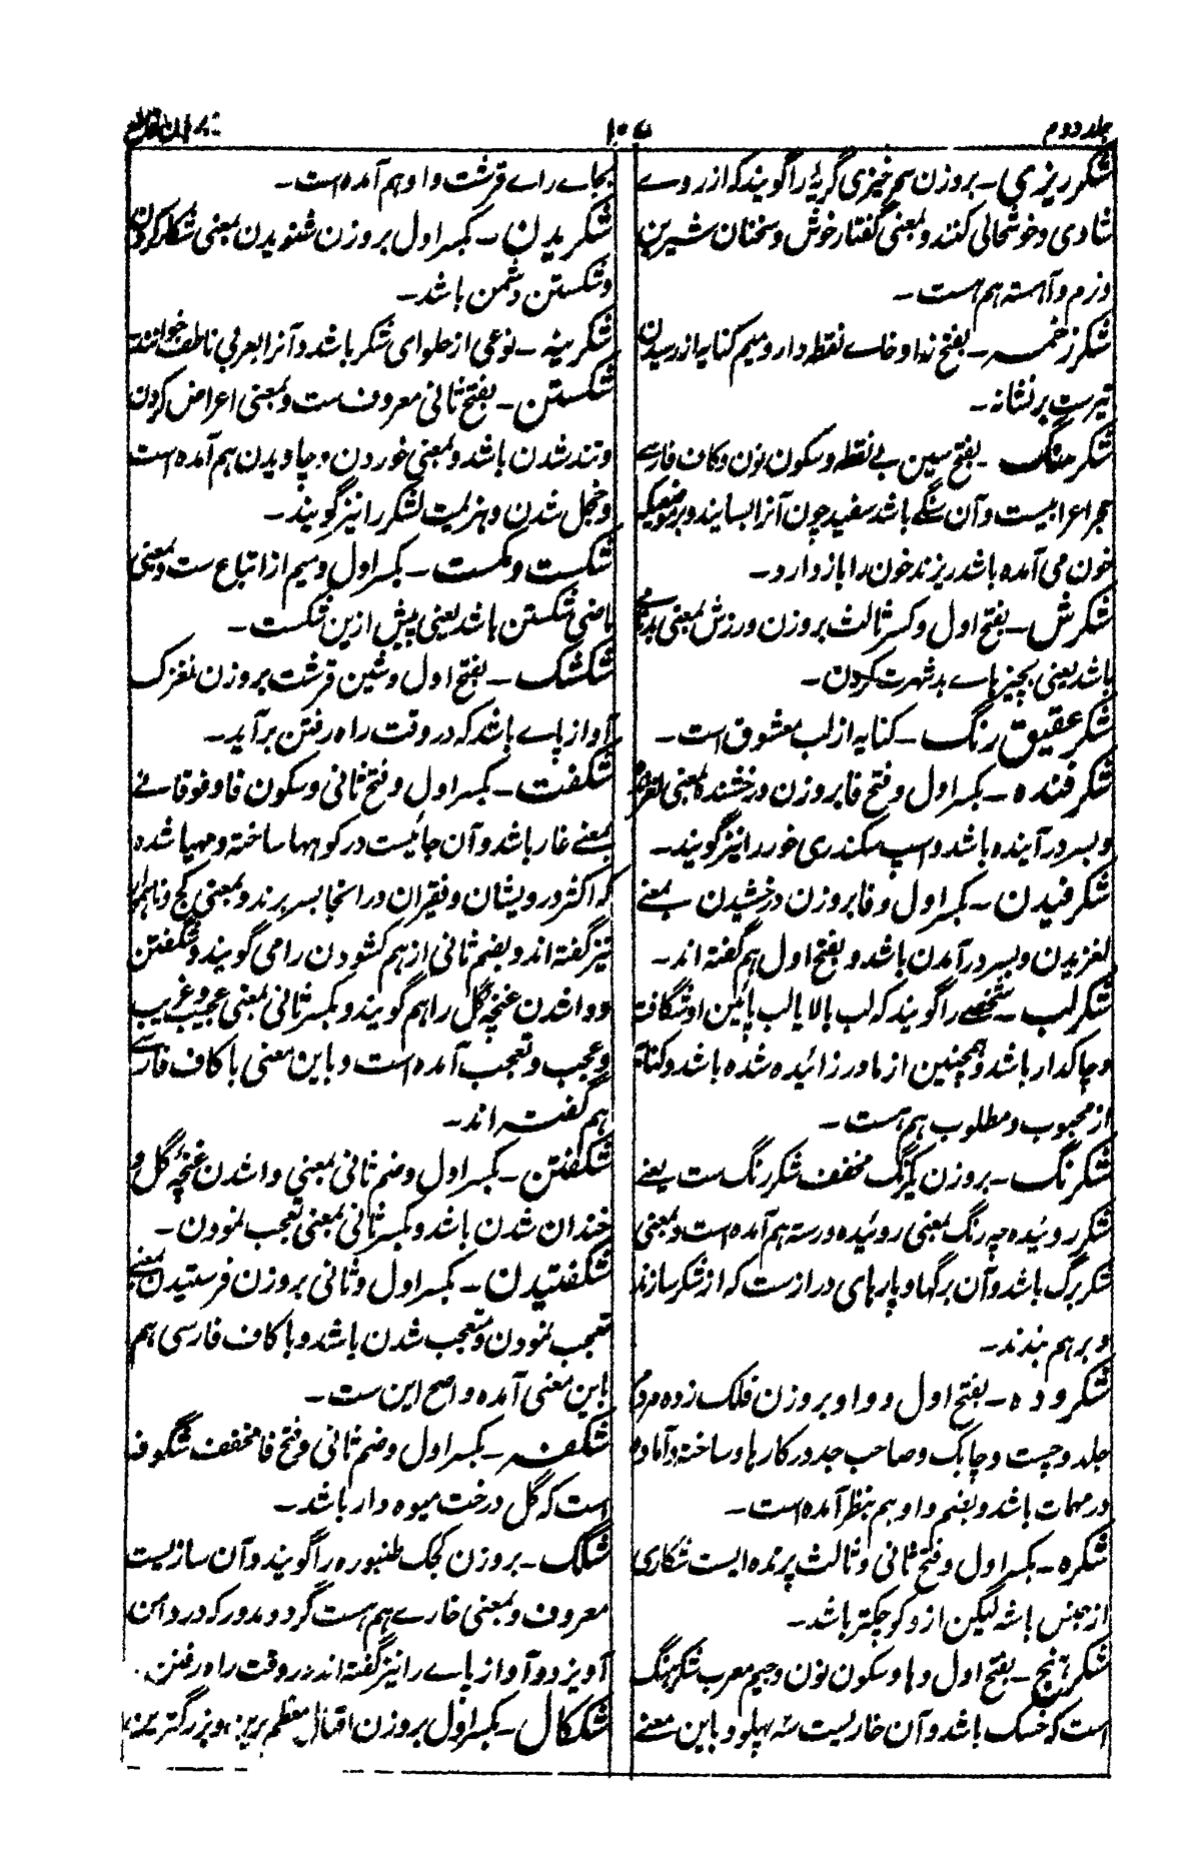 جلد دوم
۱۰۵
برهان قاطع
شکر ریزی ـ بروزن سحر خیزی گریهٔ را گویند که از روے
شادی و خوشحالی کنند و بمعنی گفتار خوش و سخنان شیرین
و نرم و آهسته هم هست ـ
شکر زخمه ـ بفتح زا و خاے نقطه دار و میم کنایه از رسیدن
تیرست بر نشانه ـ
شکر سنگ ـ بفتح سین بے نقطه و سکون نون و کاف فارسے
حجر اعرابیست و آن سنگے باشد سفید چون آنرا بسایند و بر موضعیکه
خون می آمده باشد ریزند خون را باز دارد ـ
شکرش ـ بفتح اول و کسر ثالث بروزن ورزش بمعنی بدنامے
باشد یعنی بچیز ہاے بد شهرت کردن ـ
شکر عقیق رنگ ـ کنایه از لب معشوق است ـ
شکرفنده ـ بکسر اول و فتح فا بروزن درخشنده بمعنی لغزنده
و بسر در آینده باشد و اسپ سکندری خور را نیز گویند ـ
شکرفیدن ـ بکسر اول و فا بروزن درخشیدن بمعنے
لغزیدن و بسر در آمدن باشد و بفتح اول هم گفته اند ـ
شکر لب ـ شخصے را گویند که لب بالا یا لب پائین او شگافته
و چاکدار باشد و همچنین از مادر زائیده شده باشد و کنایه
از محبوب و مطلوب هم هست ـ
شکرنگ ـ بروزن یکرنگ مخفف شکر رنگ ست یعنے
شکر روئیده چه رنگ بمعنی روئیده و رسته هم آمده است و بمعنی
شکر برگ باشد و آن برگها و پارهای دراز ست که از شکر سازند
و بر هم بندند ـ
شکروده ـ بفتح اول و واو بروزن فلک زده مردم
جلد و چست و چابک و صاحب جد در کارها و ساخته و آماده
در مهمات باشد و بضم واو هم بنظر آمده است ـ
شکره ـ بکسر اول و فتح ثانی و ثالث پرنده ایست شکاری
از جنس باشه لیکن ازو کوچکتر باشد ـ
شکرهنج ـ بفتح اول و ها و سکون نون و جیم معرب شکرهنگ
است که خسک باشد و آن خاریست سه پهلو و باین معنے
بجاے راے قرشت واو هم آمده است ـ
شکریدن ـ بکسر اول بروزن شنویدن بمعنی شکار کردن
و شکستن دشمن باشد ـ
شکرینه ـ نوعی از حلوای شکر باشد و آنرا بعربی ناطف خوانند
شکستن ـ بفتح ثانی معروف ست و بمعنی اعراض کردن
و تند شدن باشد و بمعنی خوردن و چاویدن هم آمده است
و خجل شدن و هزیمت لشکر را نیز گویند ـ
شکست و مکست ـ بکسر اول و میم از اتباع ست و بمعنی
ماضی شکستن باشد یعنی پیش ازین شکست ـ
شکشک ـ بفتح اول و شین قرشت بروزن نغزک
آواز پاے باشد که در وقت راه رفتن برآید ـ
شکفت ـ بکسر اول و فتح ثانی و سکون فا و فوقانے
بمعنے غار باشد و آن جائیست در کوهها ساخته و مهیا شده
که اکثر درویشان و فقیران در انجا بسر برند و بمعنی کج و ناهموار
نیز گفته اند و بضم ثانی از هم کشودن را می گویند و شکفتن
و وا شدن غنچه گل را هم گویند و بکسر ثانی بمعنی عجیب و غریب
و عجب و تعجب آمده است و باین معنی با کاف فارسے
هم گفته اند ـ
شکفتن ـ بکسر اول و ضم ثانی بمعنی وا شدن غنچهٔ گل و
خندان شدن باشد و بکسر ثانی بمعنی تعجب نمودن ـ
شکفتیدن ـ بکسر اول و ثانی بروزن فرستیدن بمعنے
تعجب نمودن و متعجب شدن باشد و با کاف فارسی هم
باین معنی آمده و اصح این ست ـ
شکفه ـ بکسر اول و ضم ثانی و فتح فا مخفف شگوفه
است که گل درخت میوه دار باشد ـ
شکک ـ بروزن کجک طنبوره را گویند و آن سازیست
معروف و بمعنی خارے هم هست گرد و مدور که در دامن
آویزد و آواز پاے را نیز گفته اند در وقت راه رفتن ـ
شکگال ـ بکسر اول بروزن اقبال معظم ترین و بزرگترین